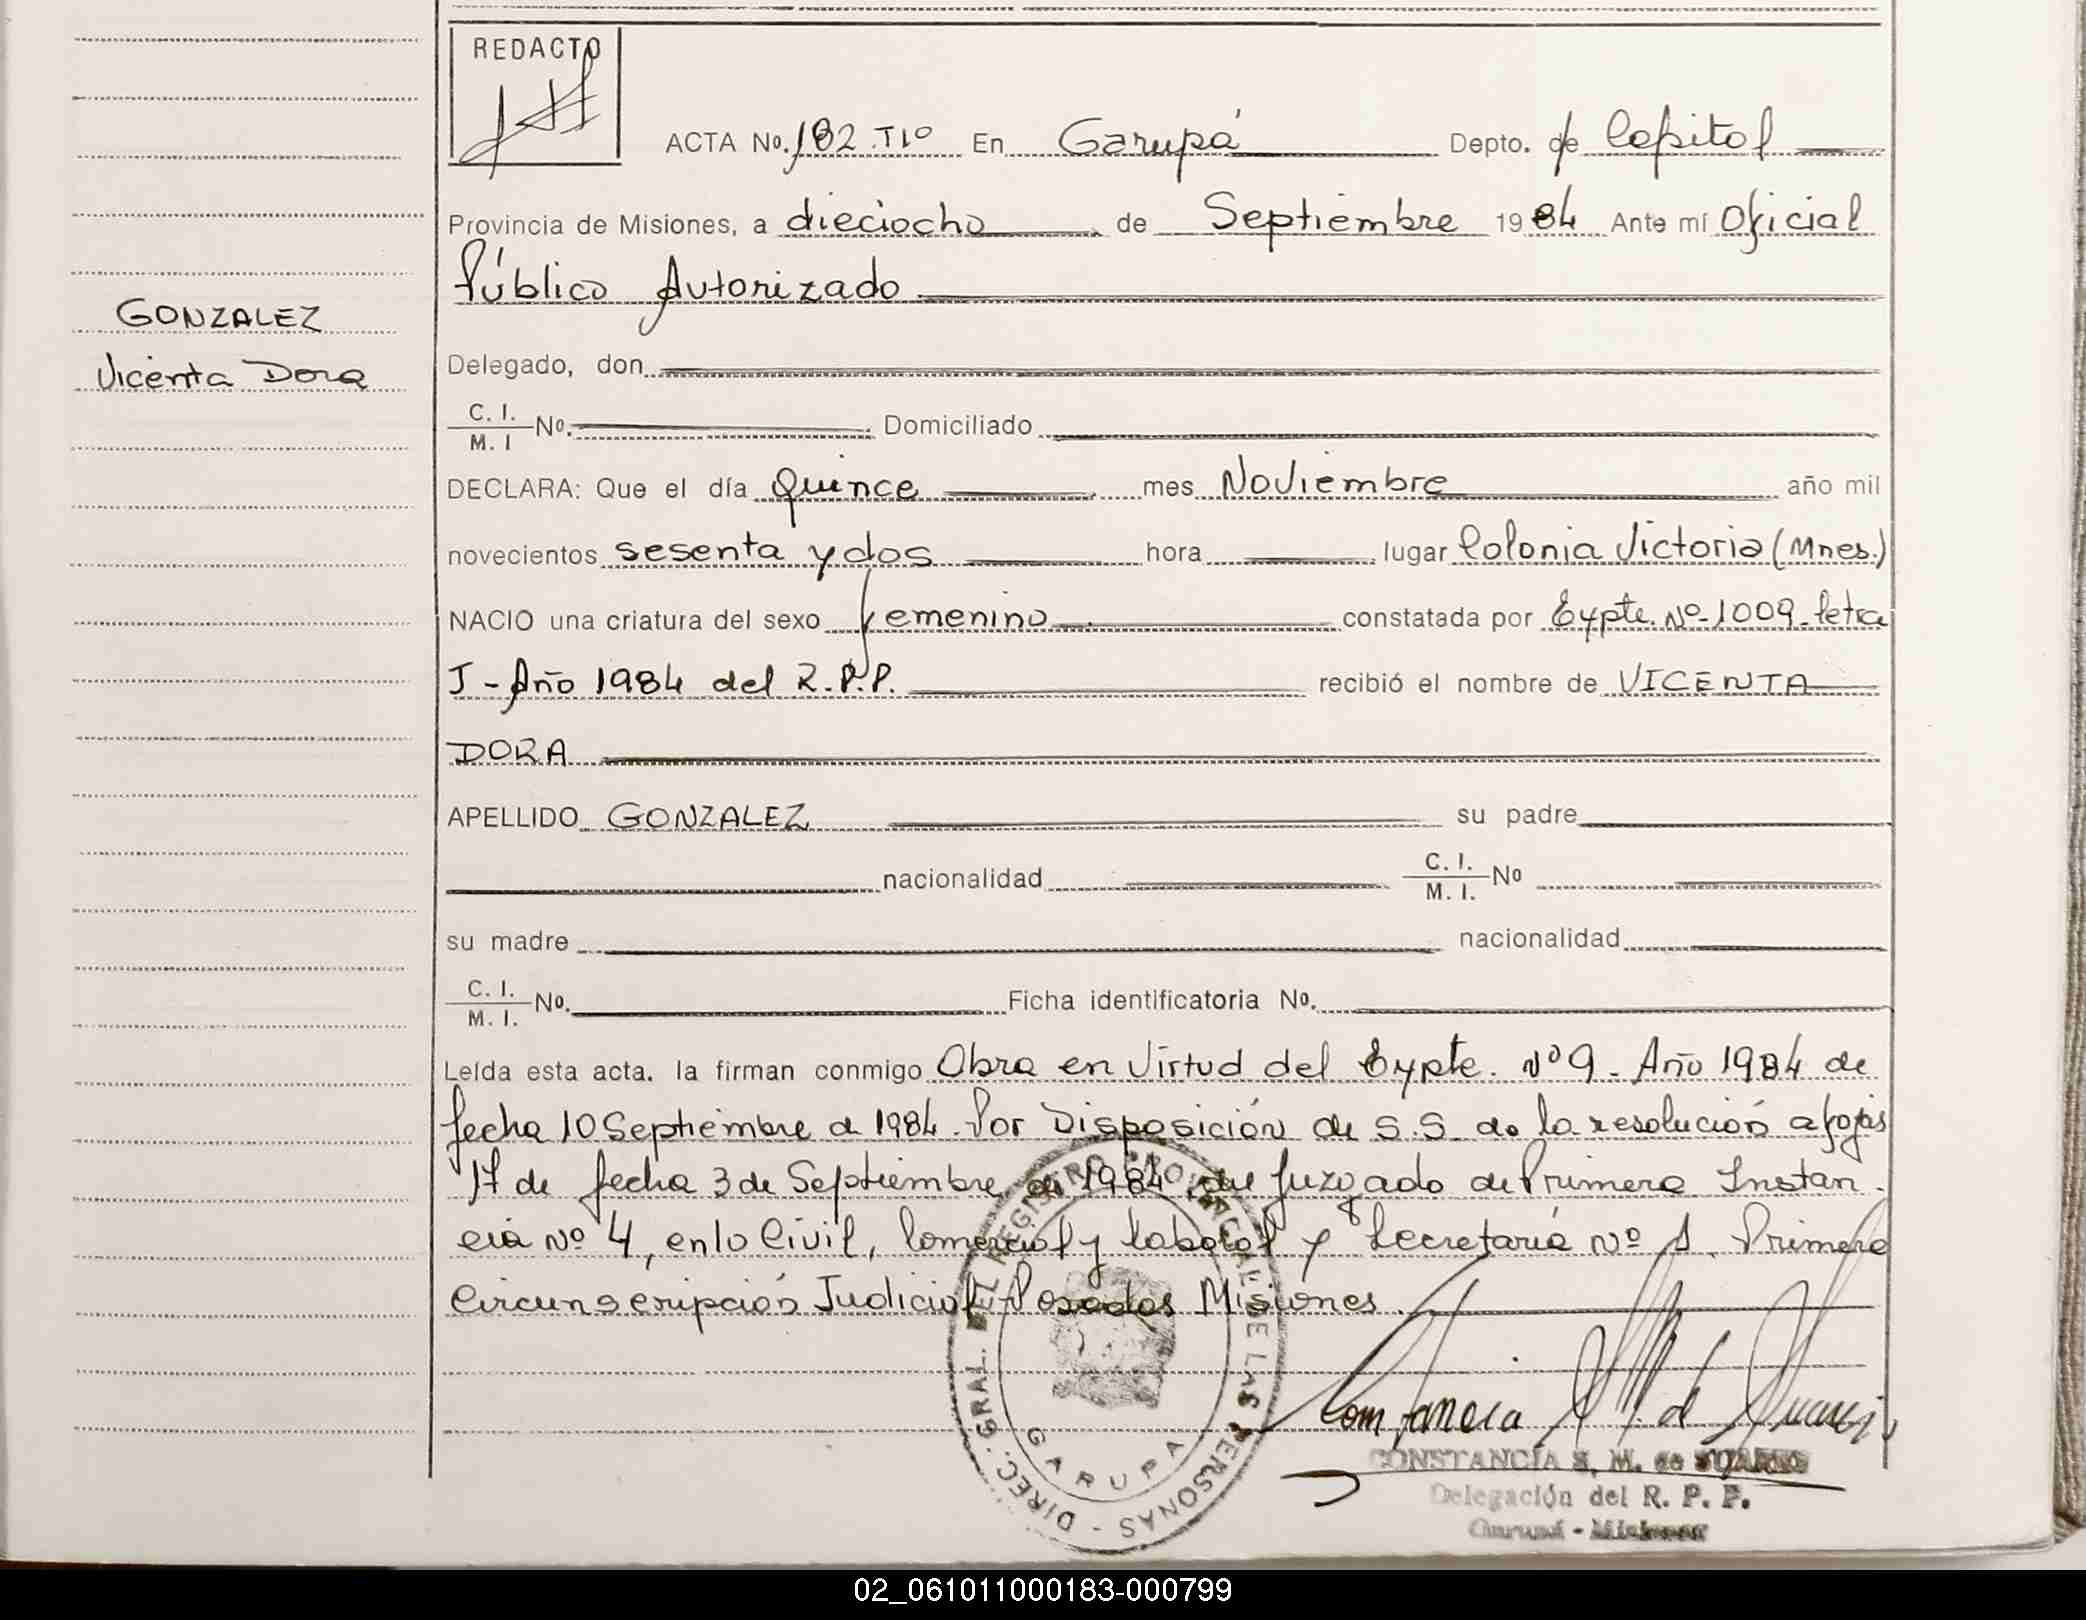 REDACTO
ACTA No. 182 TIº En Garupá Depto. de Capital
Provincia de Misiones, a dieciocho de Septiembre 1984 Ante mí Oficial
Público Autorizado
GONZALEZ
Vicenta Dora
Delegado, don
C. I.
M. I No. Domiciliado
DECLARA: Que el día Quince mes Noviembre año mil
novecientos sesenta y dos hora lugar Colonia Victoria (Mnes.)
NACIO una criatura del sexo femenino constatada por Expte. Nº 1009 letra
J - Año 1984 del R.P.P. recibió el nombre de VICENTA
DORA
APELLIDO GONZALEZ su padre
nacionalidad C. I.
M. I. No
su madre nacionalidad
C. I.
M. I. No. Ficha identificatoria No.
Leída esta acta. la firman conmigo Obra en Virtud del Expte. Nº 9 - Año 1984 de
fecha 10 Septiembre d 1984. Por Disposición de S.S. de la resolución a fojas
17 de fecha 3 de Septiembre de 1984, del Juzgado de Primera Instan
cia Nº 4, en lo Civil, Comercial y Laboral y Secretaría Nº 1. Primera
Circunscripción Judicial Posadas Misiones
DIREC. GRAL. DEL REGISTRO PROVINCIAL DE LAS PERSONAS - GARUPA
Constancia M de Suarez
CONSTANCIA S. M. de SUAREZ
Delegación del R. P. P.
Garupá - Misiones
02_061011000183-000799